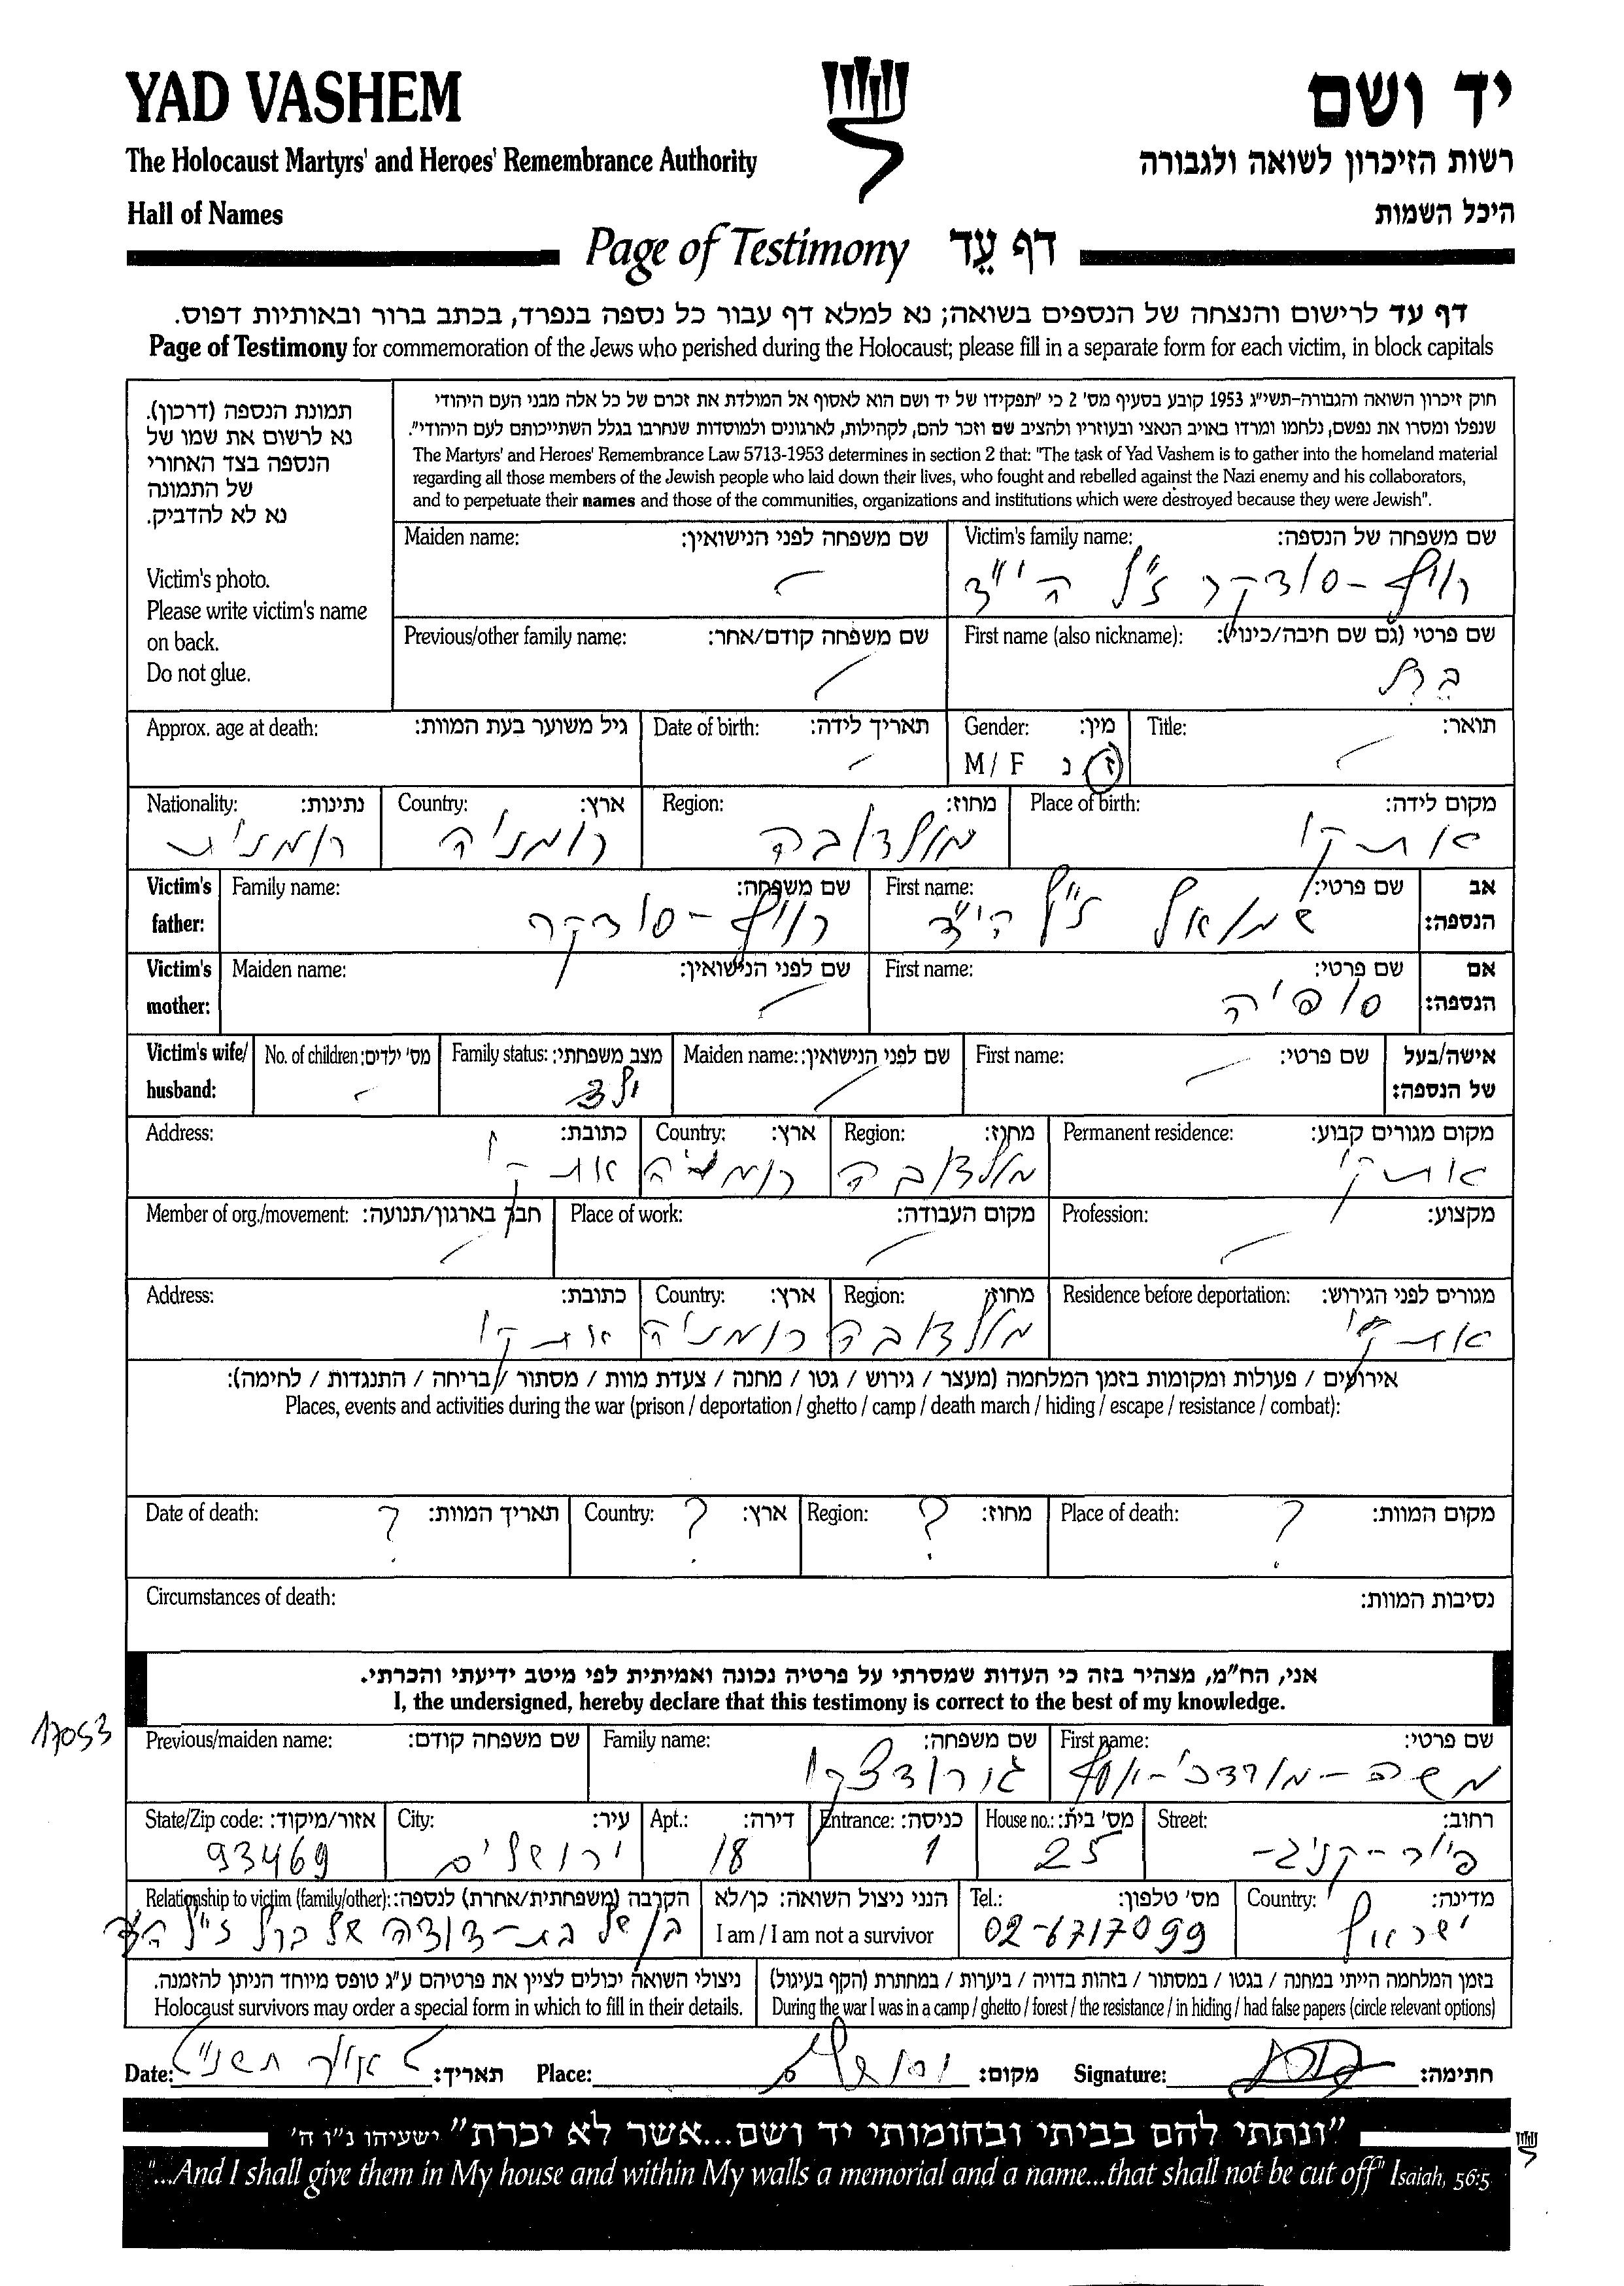 YAD VASHEM
יד ושם
The Holocaust Martyrs' and Heroes' Remembrance Authority
רשות הזיכרון לשואה ולגבורה
Hall of Names
היכל השמות
Page of Testimony דף עֵד
דף עד לרישום והנצחה של הנספים בשואה; נא למלא דף עבור כל נספה בנפרד, בכתב ברור ובאותיות דפוס.
Page of Testimony for commemoration of the Jews who perished during the Holocaust; please fill in a separate form for each victim, in block capitals
תמונת הנספה (דרכון).
נא לרשום את שמו של
הנספה בצד האחורי
של התמונה
נא לא להדביק.
Victim's photo.
Please write victim's name
on back.
Do not glue.
חוק זיכרון השואה והגבורה-תשי"ג 1953 קובע בסעיף מס' 2 כי "תפקידו של יד ושם הוא לאסוף אל המולדת את זכרם של כל אלה מבני העם היהודי
שנפלו ומסרו את נפשם, נלחמו ומרדו באויב הנאצי ובעוזריו ולהציב שם וזכר להם, לקהילות, לארגונים ולמוסדות שנחרבו בגלל השתייכותם לעם היהודי".
The Martyrs' and Heroes' Remembrance Law 5713-1953 determines in section 2 that: "The task of Yad Vashem is to gather into the homeland material
regarding all those members of the Jewish people who laid down their lives, who fought and rebelled against the Nazi enemy and his collaborators,
and to perpetuate their names and those of the communities, organizations and institutions which were destroyed because they were Jewish".
Victim's family name: שם משפחה של הנספה:
סודקר ז"ל הי"ד
Maiden name: שם משפחה לפני הנישואין:
First name (also nickname): שם פרטי (גם שם חיבה/כינוי):
ברל
Previous/other family name: שם משפחה קודם/אחר:
Title: תואר:
Gender: מין:
M / F ז נ
Date of birth: תאריך לידה:
Approx. age at death: גיל משוער בעת המוות:
Place of birth: מקום לידה:
אתקי
Region: מחוז:
מולדובה
Country: ארץ:
רומניה
Nationality: נתינות:
רומנית
Victim's father: אב הנספה:
First name: שם פרטי:
שמואל ז"ל הי"ד
Family name: שם משפחה:
סודקר
Victim's mother: אם הנספה:
First name: שם פרטי:
סופיה
Maiden name: שם לפני הנישואין:
Victim's wife/ husband: אישה/בעל של הנספה:
First name: שם פרטי:
Maiden name: שם לפני הנישואין:
Family status: מצב משפחתי:
ילד
No. of children: מס' ילדים:
Permanent residence: מקום מגורים קבוע:
אתקי
Region: מחוז:
מולדובה
Country: ארץ:
רומניה
Address: כתובת:
אתקי
Profession: מקצוע:
Place of work: מקום העבודה:
Member of org./movement: חבר בארגון/תנועה:
Residence before deportation: מגורים לפני הגירוש:
אתקי
Region: מחוז:
מולדובה
Country: ארץ:
רומניה
Address: כתובת:
אתקי
אירועים / פעולות ומקומות בזמן המלחמה (מעצר / גירוש / גטו / מחנה / צעדת מוות / מסתור / בריחה / התנגדות / לחימה):
Places, events and activities during the war (prison / deportation / ghetto / camp / death march / hiding / escape / resistance / combat):
Place of death: מקום המוות:
?
Region: מחוז:
?
Country: ארץ:
?
Date of death: תאריך המוות:
?
Circumstances of death: נסיבות המוות:
אני, הח"מ, מצהיר בזה כי העדות שמסרתי על פרטיה נכונה ואמיתית לפי מיטב ידיעתי והכרתי.
I, the undersigned, hereby declare that this testimony is correct to the best of my knowledge.
17053
First name: שם פרטי:
משה-מרדכי-יוסף
Family name: שם משפחה:
גורודצקי
Previous/maiden name: שם משפחה קודם:
Street: רחוב:
פייר-קניג
House no.: מס' בית:
25
Entrance: כניסה:
1
Apt.: דירה:
18
City: עיר:
ירושלים
State/Zip code: אזור/מיקוד:
93469
Country: מדינה:
ישראל
Tel.: מס' טלפון:
02-6717099
הנני ניצול השואה: כן/לא
I am / I am not a survivor
Relationship to victim (family/other): הקרבה (משפחתית/אחרת) לנספה:
בן של בת-דודה של ברל ז"ל הי"ד
בזמן המלחמה הייתי במחנה / בגטו / במסתור / בזהות בדויה / ביערות / במחתרת (הקף בעיגול)
During the war I was in a camp / ghetto / forest / the resistance / in hiding / had false papers (circle relevant options)
ניצולי השואה יכולים לציין את פרטיהם ע"ג טופס מיוחד הניתן להזמנה.
Holocaust survivors may order a special form in which to fill in their details.
Signature: חתימה:
Place: מקום:
ירושלים
Date: תאריך:
"ונתתי להם בביתי ובחומותי יד ושם...אשר לא יכרת" ישעיהו נ"ו ה'
"...And I shall give them in My house and within My walls a memorial and a name...that shall not be cut off" Isaiah, 56:5